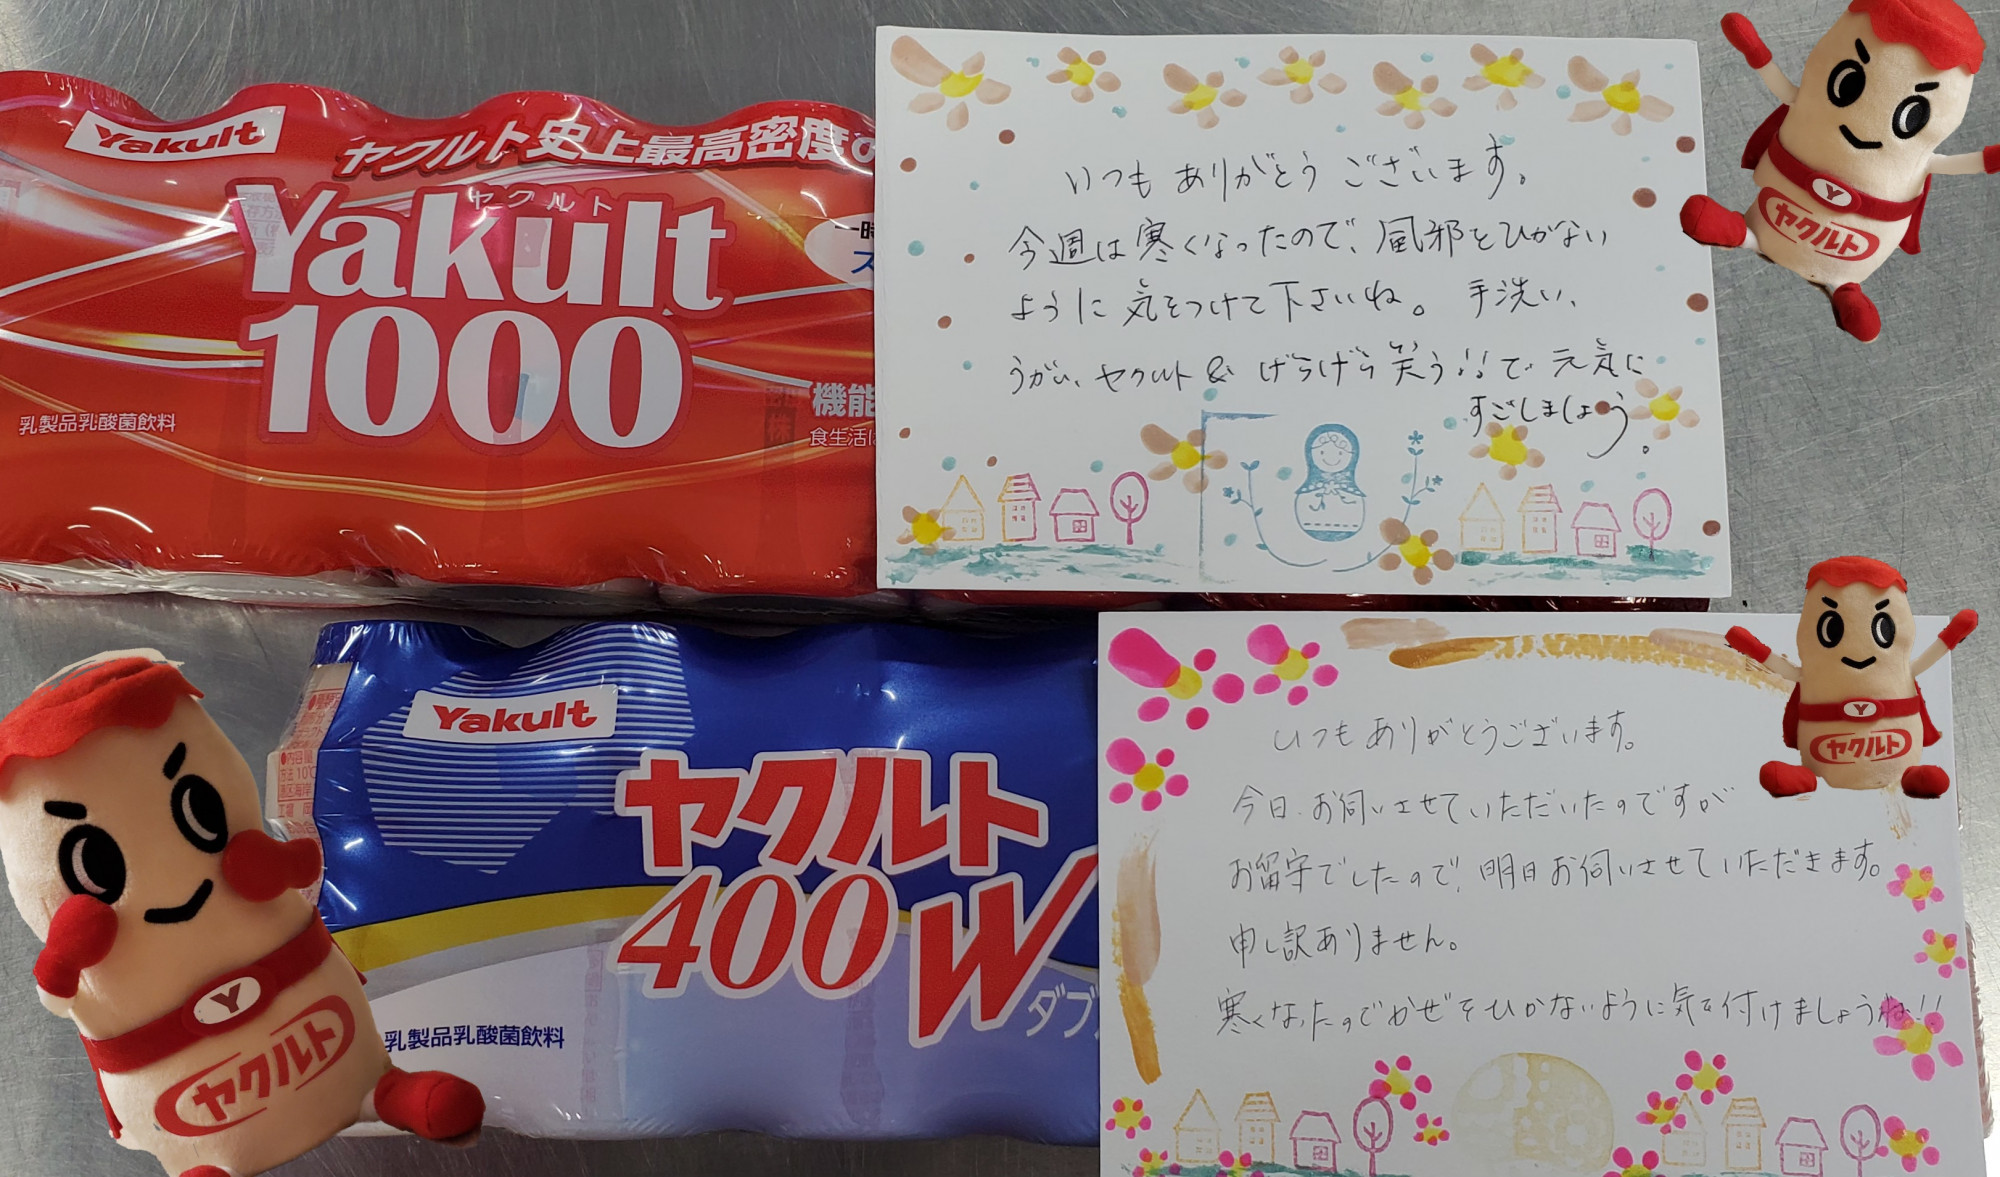 Yakult
ヤクルト史上最高密度の
ヤクルト
Yakult
1000
乳製品乳酸菌飲料
機能
食生活は
いつもありがとうございます。
今週は寒くなったので、風邪をひかない
ように気をつけて下さいね。 手洗い、
うがい、ヤクルト & げらげら笑う!!で 元気に
すごしましょう。
Y
ヤクルト
Yakult
ヤクルト
400W
乳製品乳酸菌飲料
いつもありがとうございます。
今日、お伺いさせていただいたのですが
お留守でしたので、明日お伺いさせていただきます。
申し訳ありません。
寒くなったのでかぜをひかないように気を付けましょうね!!
Y
ヤクルト
Y
ヤクルト